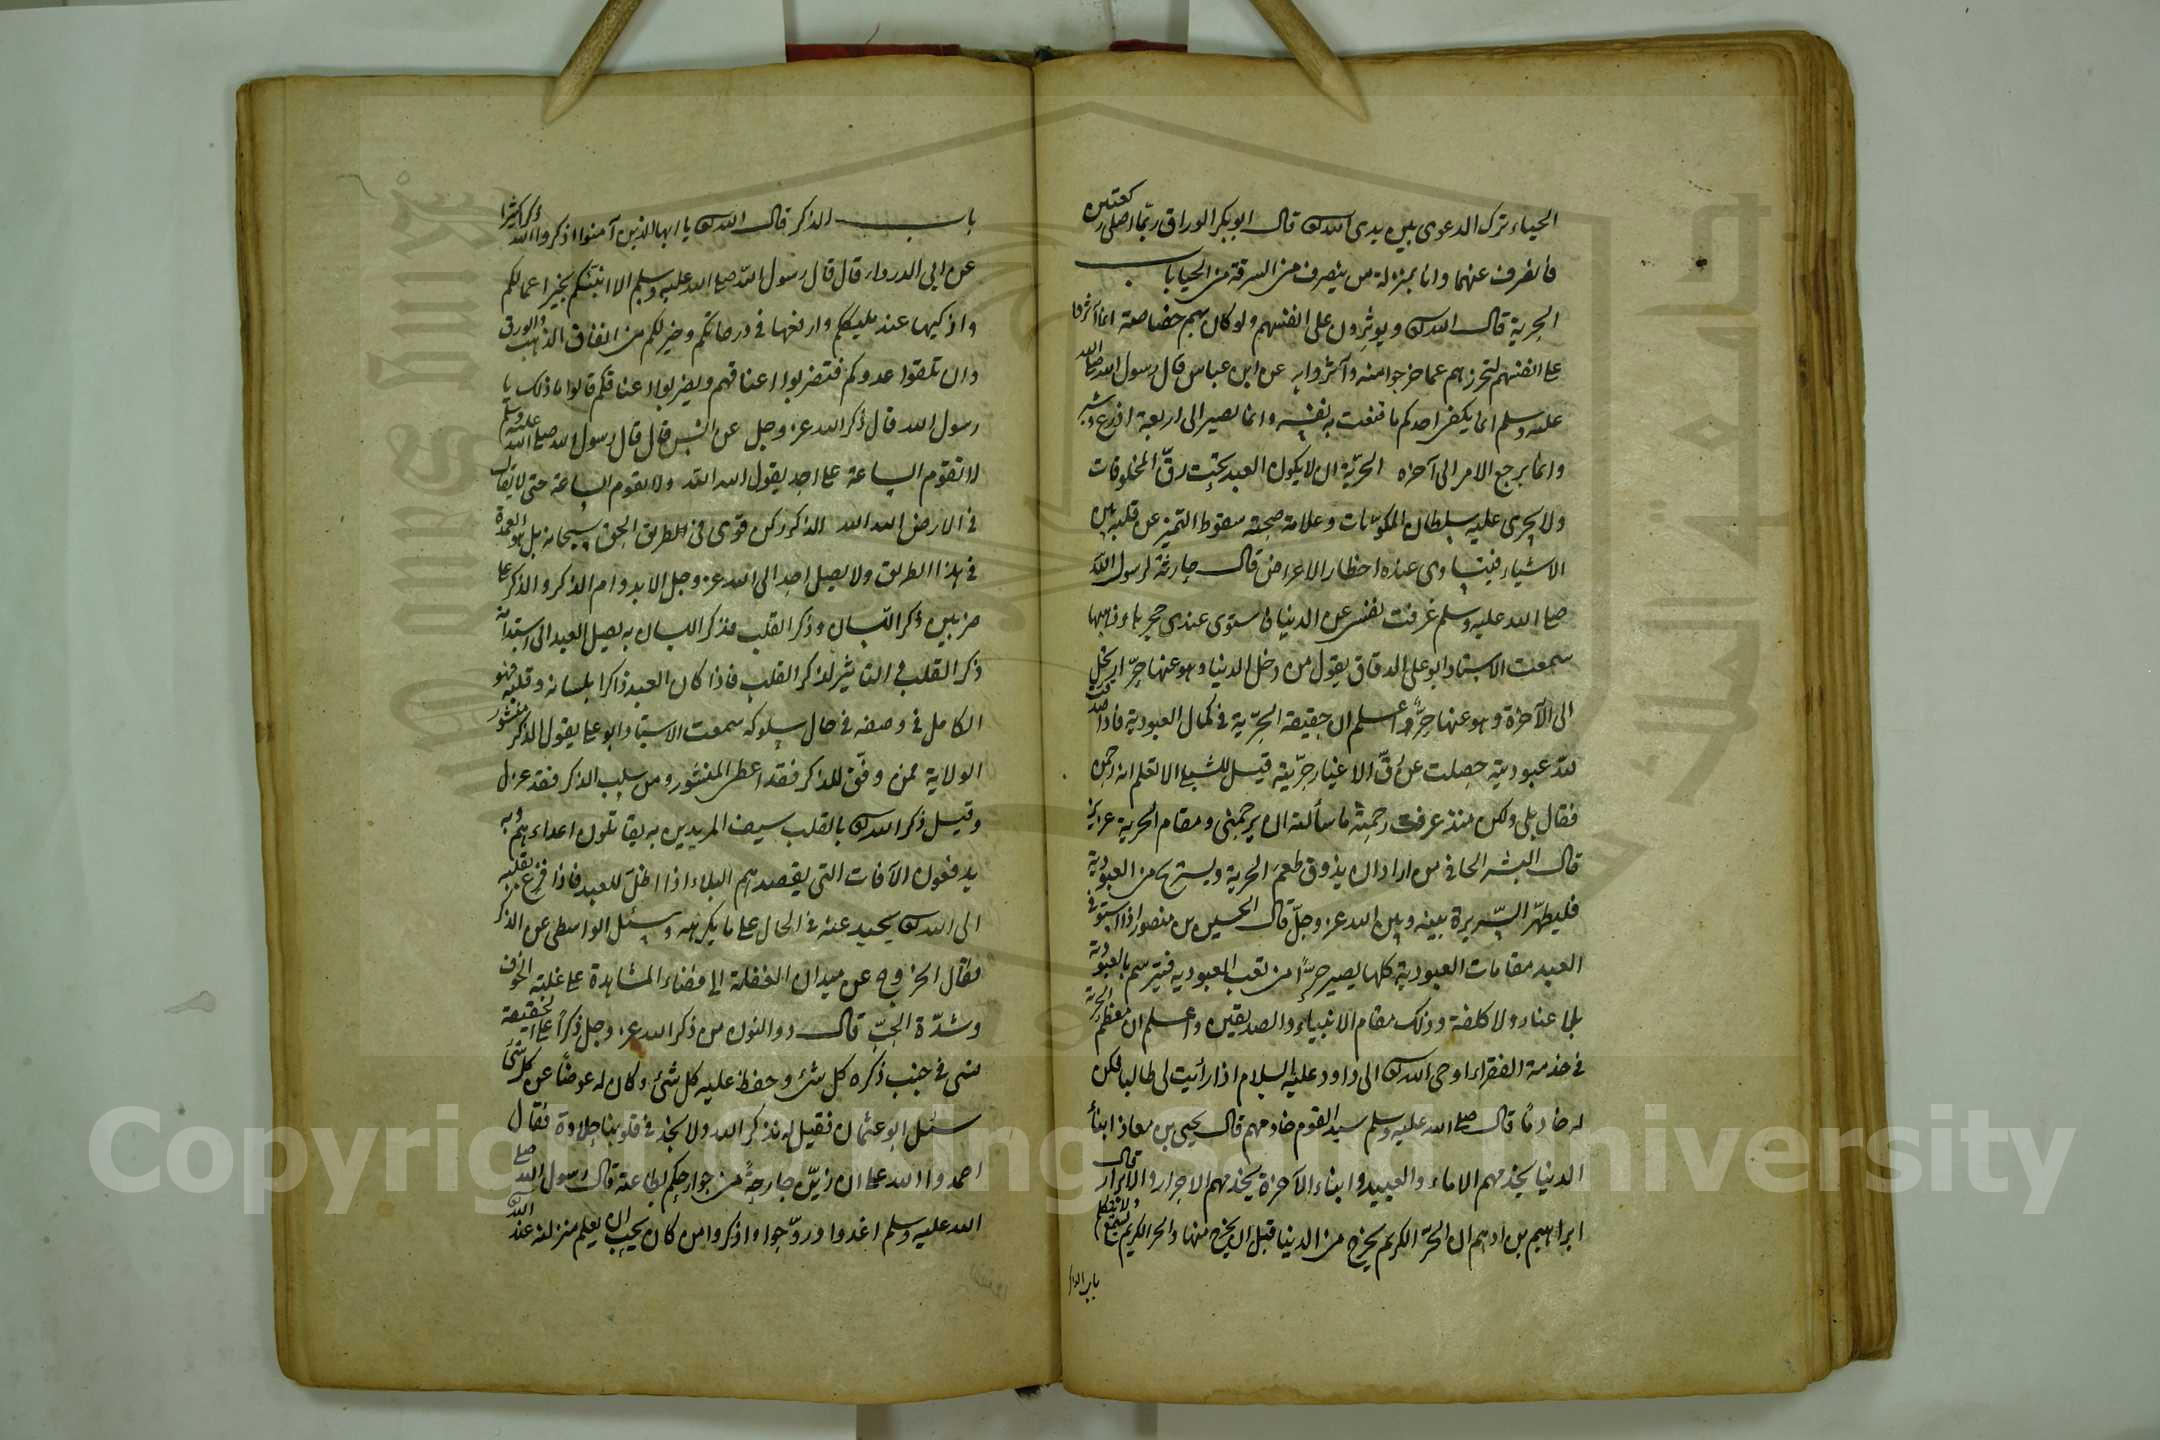 الحياء ترك الدعوى بين يدى الله تعالى قال ابو بكر الوراق ربما اصلى ركعتين
فأنصرف عنهما وانا بمنزلة من ينصرف من السرقة من الحيا باب
الحرية قال الله تعالى ويؤثرون على انفسهم ولو كان بهم خصاصة انما آثروا
على انفسهم لتحررهم عما خرجوا منه وآثروا به عن ابن عباس قال رسول الله صلى الله
عليه وسلم انما يكفى احدكم ما قنعت به نفسه وانما يصير الى اربعة اذرع وشبر
وانما يرجع الامر الى آخره الحرية ان لا يكون العبد تحت رق المخلوقات
ولا يجرى عليه سلطان المكونات وعلامة صحته سقوط التميز عن قلبه بين
الاشياء فيتساوى عنده اخطار الاعراض قال حارثة لرسول الله
صلى الله عليه وسلم عرفت نفسى عن الدنيا فاستوى عندى حجرها وذهبها
سمعت الاستاد ابو على الدقاق يقول من دخل الدنيا وهو عنها حر ارتحل
الى الآخرة وهو عنها حر واعلم ان حقيقة الحرية فى كمال العبودية فاذا صدقت
لله عبوديته حصلت عن رق الاغيار حريته قيل للشبلى الا تعلم انه رحمن
فقال بلى ولكن منذ عرفت رحمته ما سألته ان يرحمنى ومقام الحرية عزيز
قال البشر الحافى من اراد ان يذوق طعم الحرية ويستريح من العبودية
فليطهر السريرة بينه وبين الله عز وجل قال الحسين بن منصور اذا استوفى
العبد مقامات العبودية كلها يصير حرا من تعب العبودية فيترسم بالعبودية
بلا عناء ولا كلفة وذلك مقام الانبياء والصديقين واعلم ان معظم الحرية
فى خدمة الفقراء اوحى الله تعالى الى داود عليه السلام اذا رأيت لى طالبا فكن
له خادما قال صلى الله عليه وسلم سيد القوم خادمهم قال يحيى بن معاذ ابناء
الدنيا يخدمهم الاماء والعبيد وابناء الآخرة يخدمهم الاحرار والابرار قال
ابراهيم بن ادهم ان الحر الكريم يخرج من الدنيا قبل ان يخرج منها والحر الكريم
باب الذكر
باب الذكر قال الله تعالى يا ايها الذين آمنوا اذكروا الله ذكرا كثيرا
عن ابى الدرداء قال قال رسول الله صلى الله عليه وسلم الا انبئكم بخير اعمالكم
واذكيها عند مليككم وارفعها فى درجاتكم وخير لكم من انفاق الذهب والورق
وان تلقوا عدوكم فتضربوا اعناقهم ويضربوا اعناقكم قالوا ما ذلك يا
رسول الله قال ذكر الله عز وجل عن انس قال قال رسول الله صلى الله عليه وسلم
لا تقوم الساعة على احد يقول الله الله ولا تقوم الساعة حتى لا يقال
فى الارض الله الله الذكر ركن قوى فى طريق الحق سبحانه بل هو العمدة
فى هذا الطريق ولا يصل احد الى الله عز وجل الا بدوام الذكر والذكر على
ضربين ذكر اللسان وذكر القلب فذكر اللسان به يصل العبد الى استدامة
ذكر القلب فى التأثير لذكر القلب فاذا كان العبد ذاكرا بلسانه وقلبه فهو
الكامل فى وصفه فى حال سلوكه سمعت الاستاد ابو على يقول الذكر منشور
الولاية فمن وفق للذكر فقد اعطى المنشور ومن سلب الذكر فقد عزل
وقيل ذكر الله تعالى بالقلب سيف المريدين به يقاتلون اعداءهم وبه
يدفعون الآفات التى يقصدهم البلاء اذا اظل للعبد فاذا فزع بقلبه
الى الله تعالى يحيد عنه فى الحال على ما يكرهه وسئل الواسطى عن الذكر
فقال الخروج عن ميدان الغفلة الى فضاء المشاهدة على غلبة الخوف
وشدة الحب قال ذو النون من ذكر الله عز وجل ذكرا على الحقيقة
نسى فى جنب ذكره كل شئ وحفظ عليه كل شئ وكان له عوضا عن كل شئ
سئل ابو عثمان فقيل له نذكر الله ولا نجد فى قلوبنا حلاوة فقال
احمدوا الله على ان زين جارحة من جوارحكم بطاعته قال رسول الله صلى
الله عليه وسلم اغدوا وروحوا واذكروا من كان يحب ان يعلم منزلته عند الله
Copyright © King Saud University